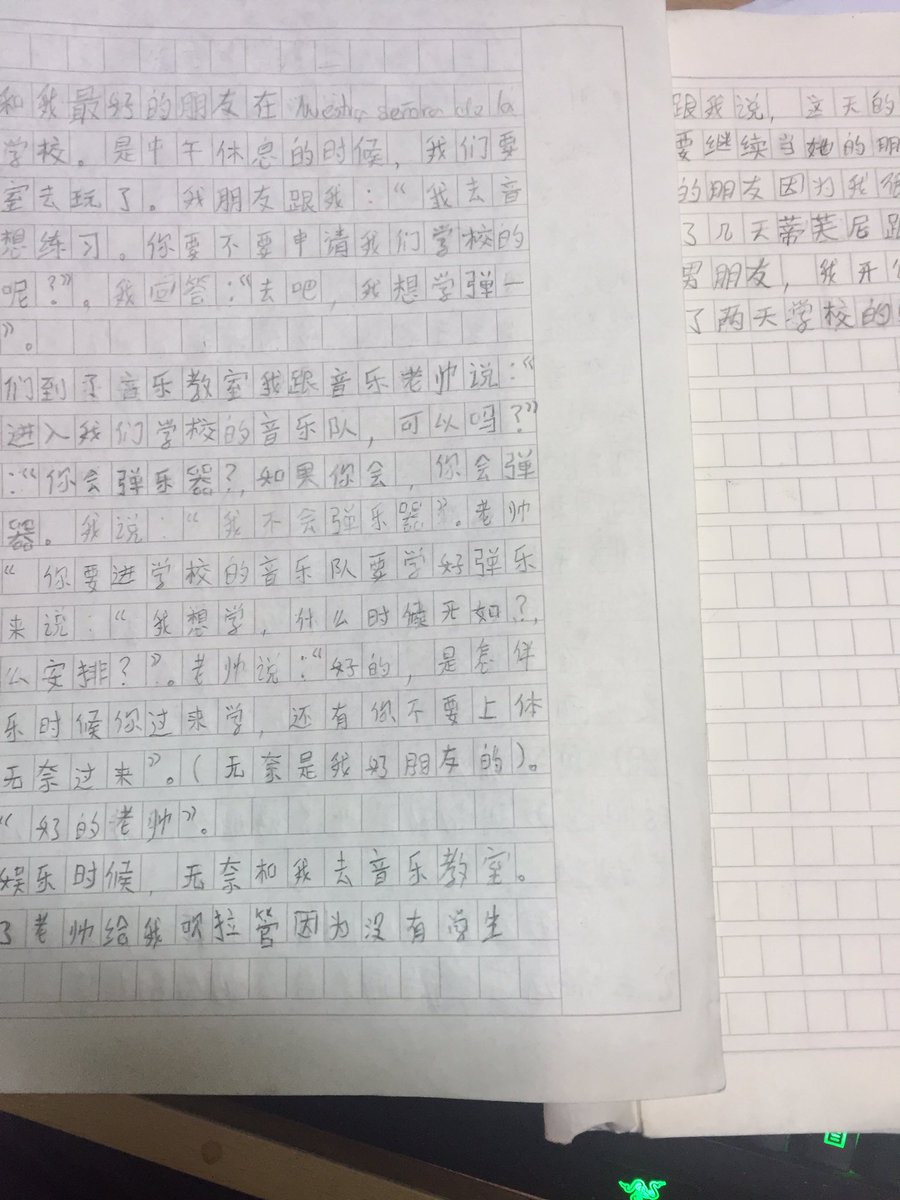 和我最好的朋友在 Nuestra señora de la
学校。是中午休息的时候，我们要
室去玩了。我朋友跟我：“我去音
想练习。你要不要申请我们学校的
呢？”。我回答：“去吧，我想学弹一
”。
们到了音乐教室我跟音乐老帅说：“
进入我们学校的音乐队，可以吗？”
：“你会弹乐器？，如果你会，你会弹
器。我说：“我不会弹乐器”。老帅
“你要进学校的音乐队要学好弹乐
来说：“我想学，什么时候开如？，
么安排？”。老帅说：“好的，是怎样
乐时候你过来学，还有你不要上体
无奈过来”。（无奈是我好朋友的）。
“好的老帅”。
娱乐时候，无奈和我去音乐教室。
了老帅给我吹拉管因为没有学生
跟我说，这天的
要继续当她的朋
的朋友因为我很
了几天蒂芙尼跟
男朋友，我开
了两天学校的